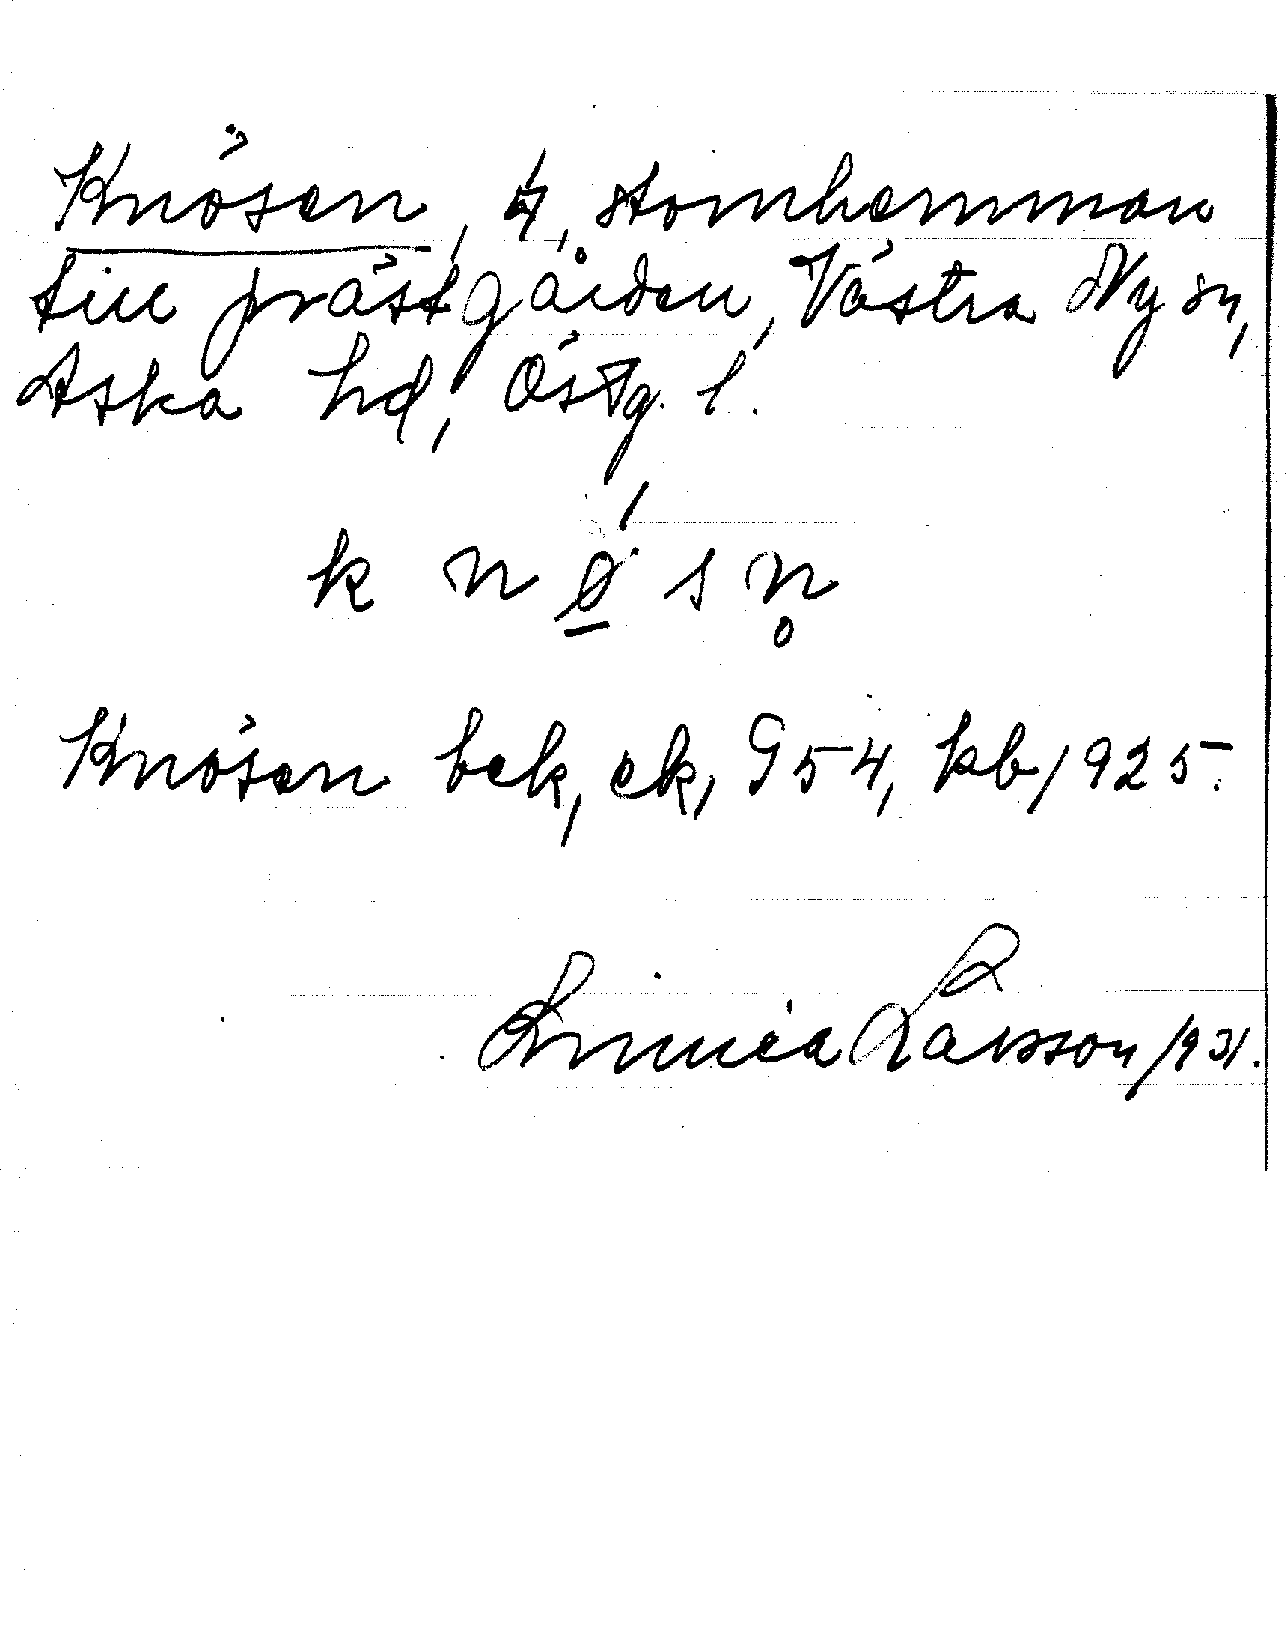 Knösen, 4, stomhemman
till prästgården, Västra Ny sn,
Aska hd, Östg. l.
k n ø s n̥
Knösen bek, ek, G 54, kb 1925.
Linnéa Larsson 1931.